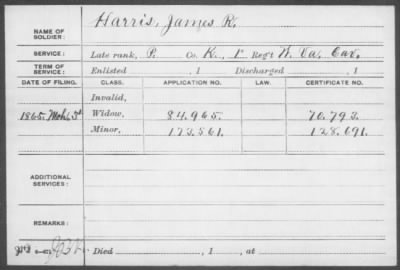 NAME OF SOLDIER: Harris, James R.
SERVICE: Late rank, P. Co. K, 1st Reg't W. Va. Cav.
TERM OF SERVICE: Enlisted , 1 Discharged , 1
DATE OF FILING. CLASS. APPLICATION NO. LAW. CERTIFICATE NO.
Invalid,
1865. Mch. 3d Widow, 84.965. 70.793.
Minor, 173.561. 128.691.
ADDITIONAL SERVICES:
REMARKS:
Died , 1 , at